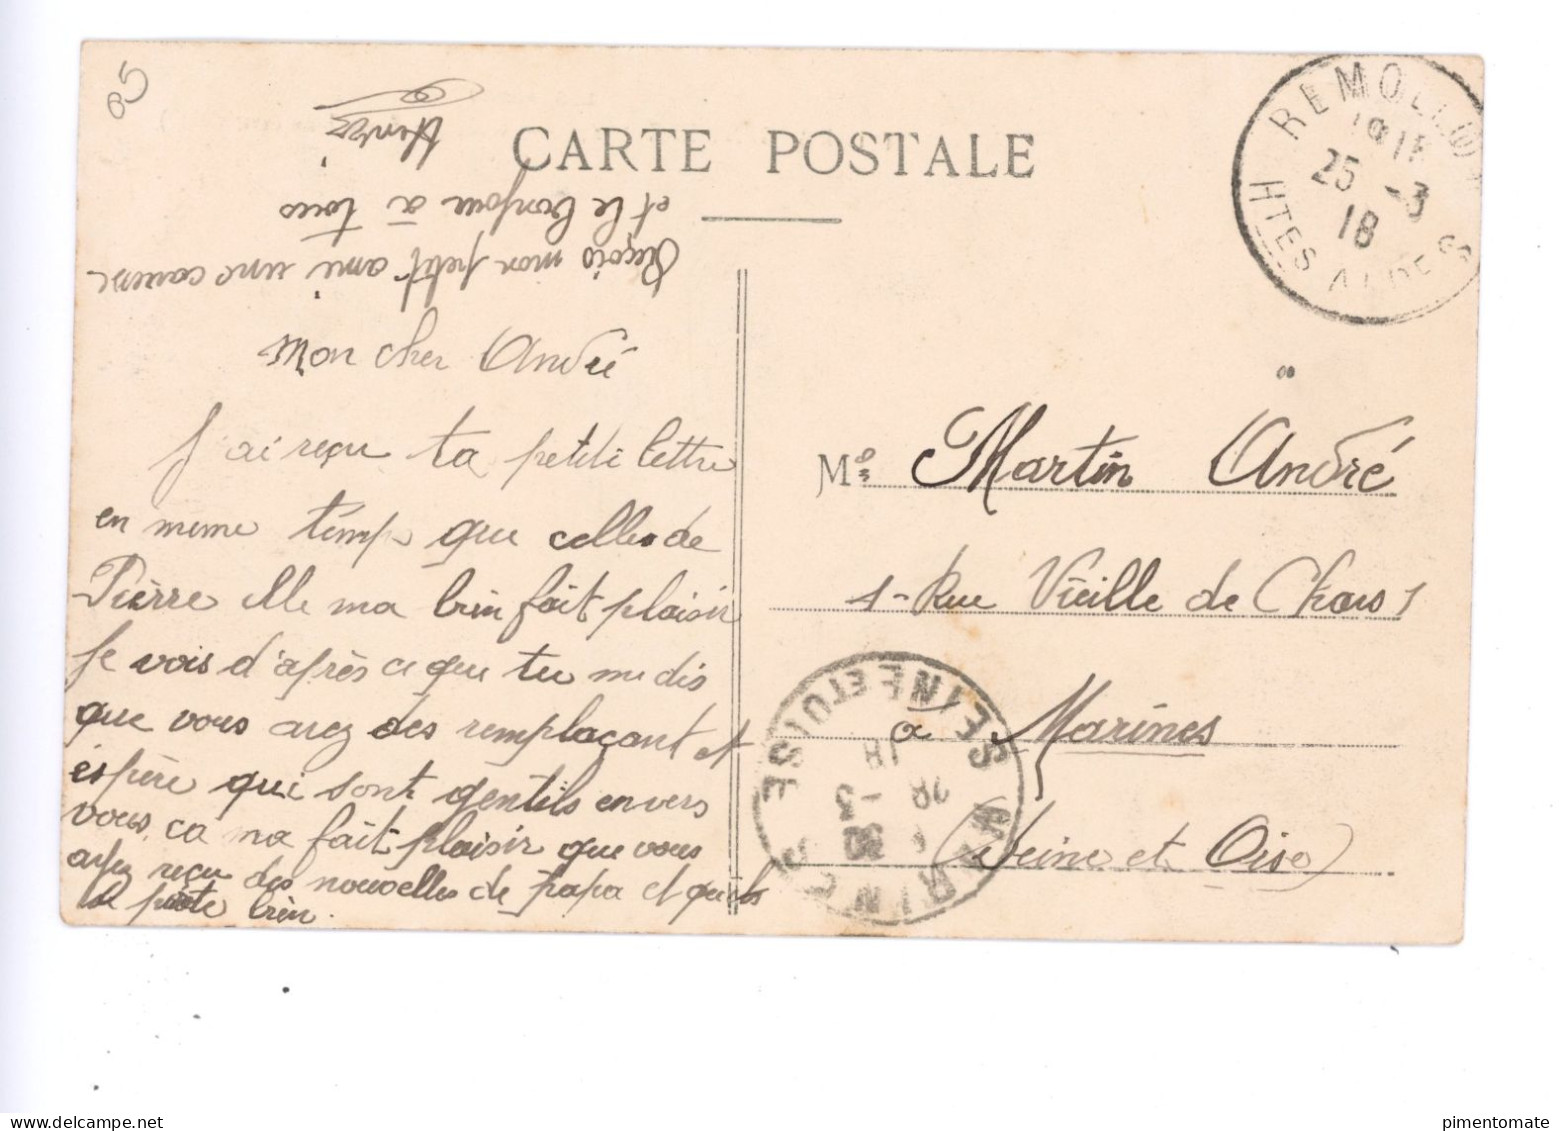 05
CARTE POSTALE
REMOLLON
25 -3
18
HTES ALPES
Mon cher André
J'ai reçu ta petite lettre
en meme temps que celles de
Pierre elle ma bien fait plaisir
Je vois d'après ce que tu me dis
que vous avez des remplaçant et
éspére qui sont gentils envers
vous, ca ma fait plaisir que vous
ayez reçu des nouvelles de papa et quels
se porte bien.
Reçois mon petit ami une caresse
et le bonjour à tous
Henri
M
Martin André
1 - Rue Vieille de Chars 1
a Marines
(Seine et Oise)
MARINES
SEINE ET OISE
28 -3
18
pimentomate